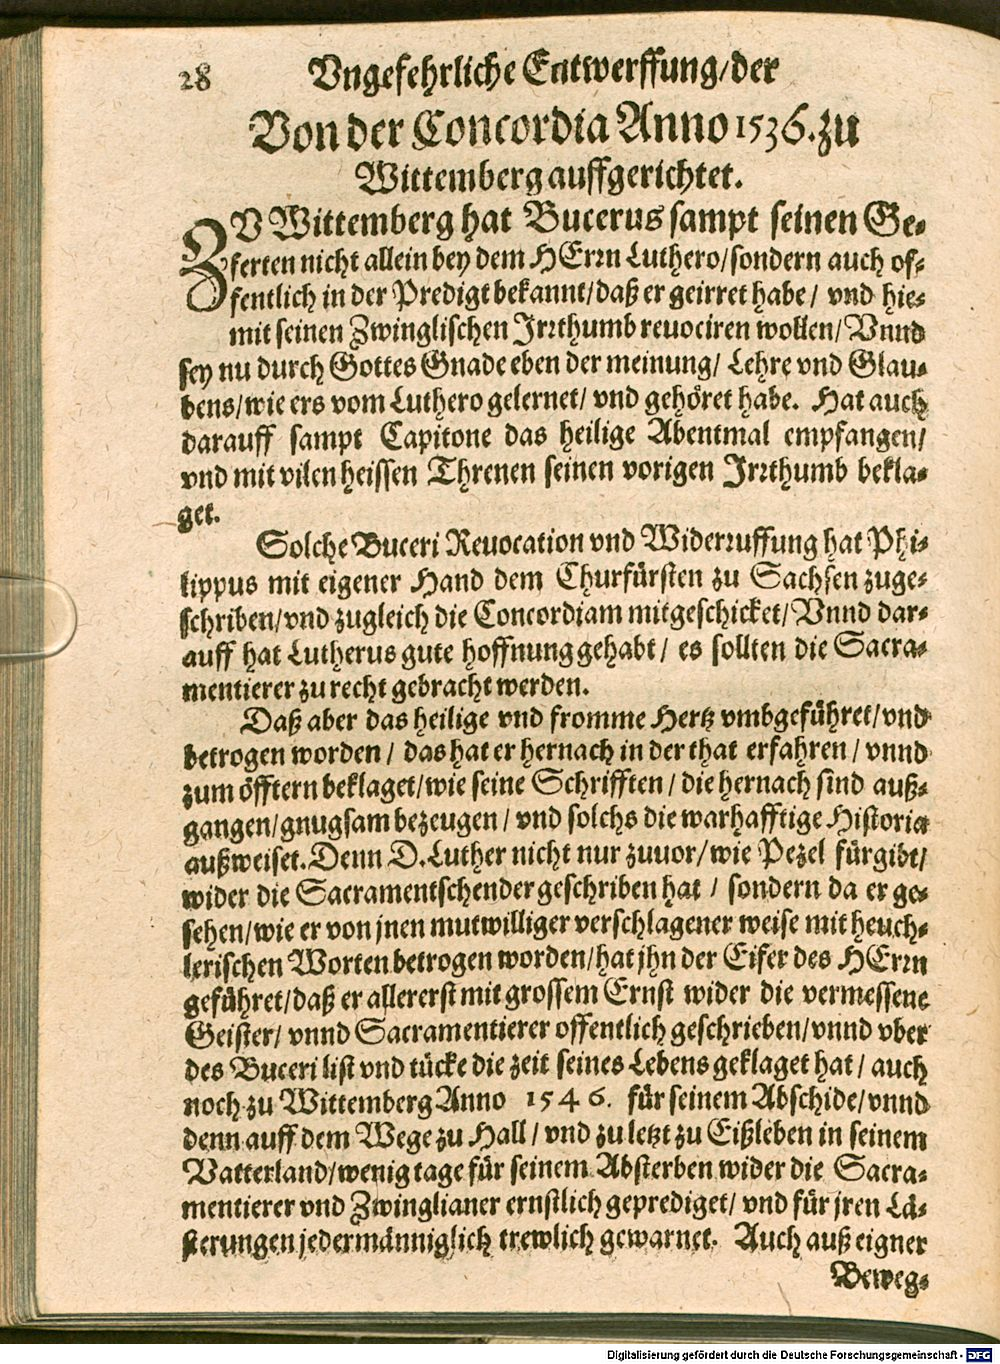 28 Vngefehrliche Entwerffung/der
Von der Concordia Anno 1536. zu
Wittemberg auffgerichtet.
ZV Wittemberg hat Bucerus sampt seinen Ge-
ferten nicht allein bey dem HErrn Luthero/sondern auch of-
fentlich in der Predigt bekannt/daß er geirret habe/ vnd hie-
mit seinen Zwinglischen Irrthumb reuociren wollen/Vnnd
sey nu durch Gottes Gnade eben der meinung/ Lehre vnd Glau-
bens/wie ers vom Luthero gelernet/ vnd gehöret habe. Hat auch
darauff sampt Capitone das heilige Abentmal empfangen/
vnd mit vilen heissen Threnen seinen vorigen Irrthumb bekla-
get.
Solche Buceri Reuocation vnd Widerruffung hat Phi-
lippus mit eigener Hand dem Churfürsten zu Sachsen zuge-
schriben/vnd zugleich die Concordiam mitgeschicket/Vnnd dar-
auff hat Lutherus gute hoffnung gehabt/ es sollten die Sacra-
mentierer zu recht gebracht werden.
Daß aber das heilige vnd fromme Hertz vmbgeführet/vnd
betrogen worden/ das hat er hernach in der that erfahren/ vnnd
zum öfftern beklaget/wie seine Schrifften/ die hernach sind auß-
gangen/gnugsam bezeugen/ vnd solchs die warhafftige Historia
außweiset. Denn D. Luther nicht nur zuuor/wie Pezel fürgibt/
wider die Sacramentschender geschriben hat/ sondern da er ge-
sehen/wie er von jnen mutwilliger verschlagener weise mit heuch-
lerischen Worten betrogen worden/hat jhn der Eifer des HErrn
geführet/daß er allererst mit grossem Ernst wider die vermessene
Geister/ vnnd Sacramentierer offentlich geschrieben/vnnd vber
des Buceri list vnd tücke die zeit seines Lebens geklaget hat/ auch
noch zu Wittemberg Anno 1546. für seinem Abschide/vnnd
denn auff dem Wege zu Hall/ vnd zu letzt zu Eißleben in seinem
Vatterland/wenig tage für seinem Absterben wider die Sacra-
mentierer vnd Zwinglianer ernstlich geprediget/ vnd für jren Lä-
sterungen jedermänniglich trewlich gewarnet. Auch auß eigner
Beweg-
Digitalisierung gefördert durch die Deutsche Forschungsgemeinschaft - DFG